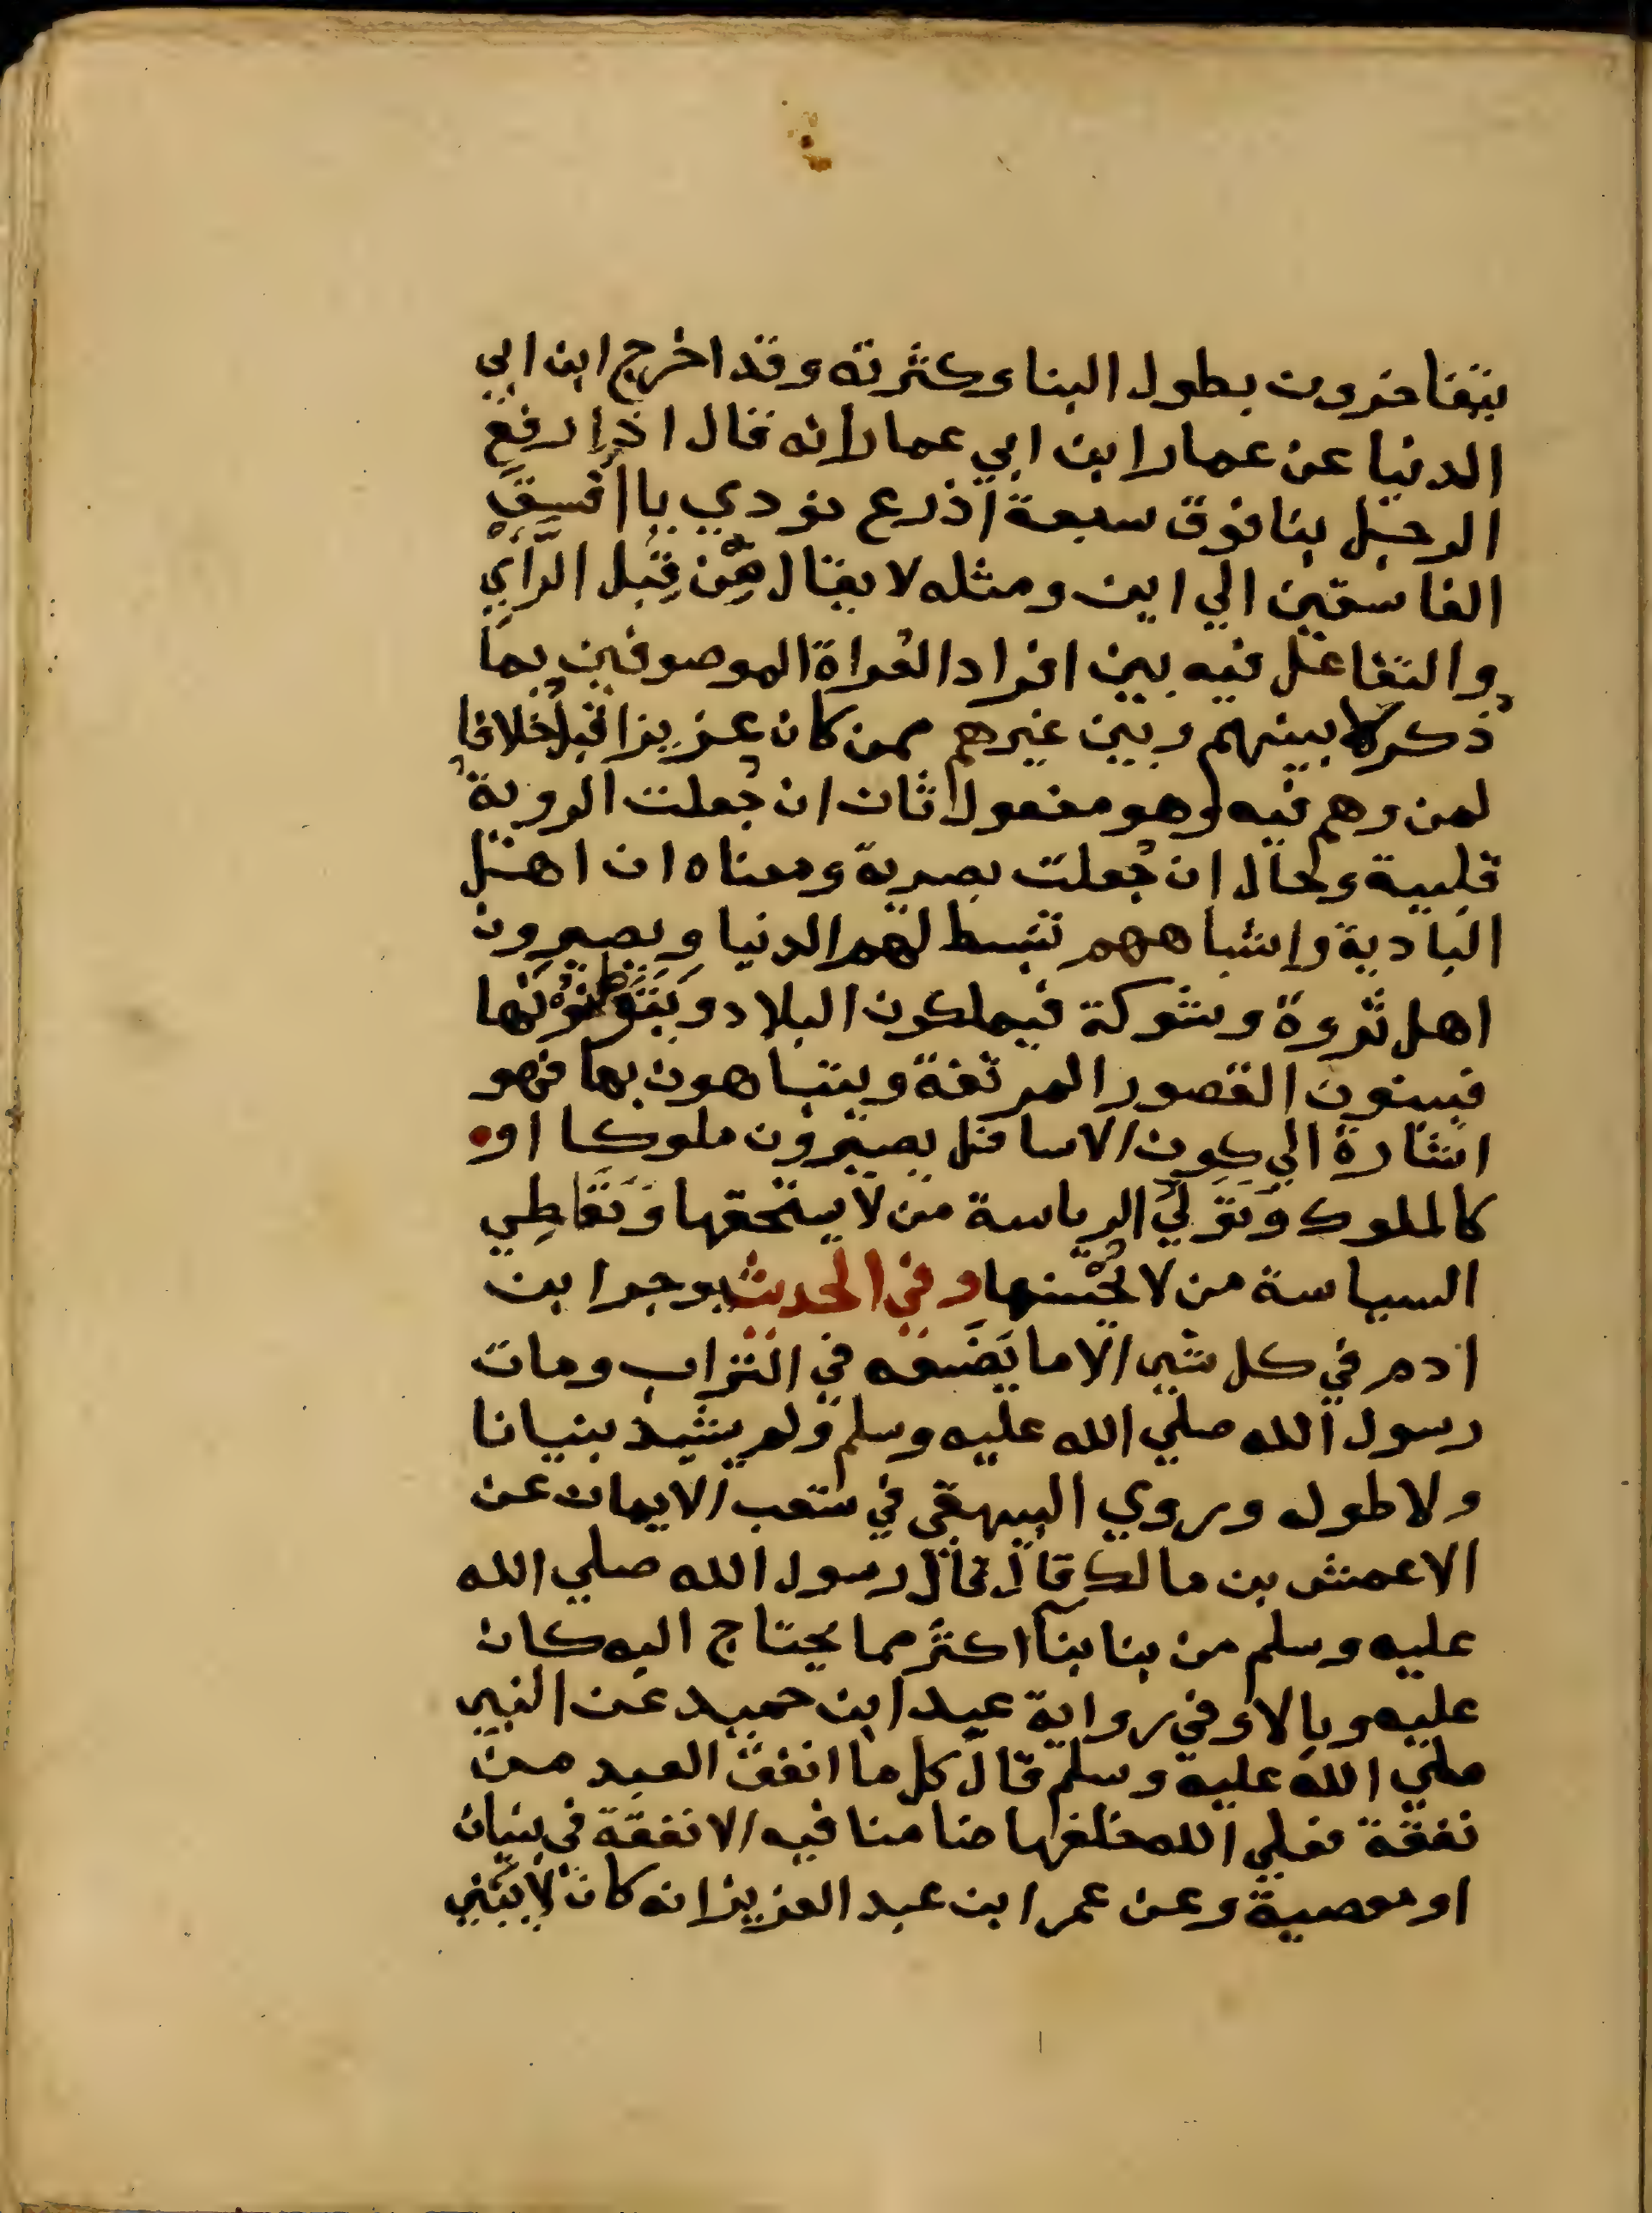 يتفاخرون بطول البنا وكثرته وقد اخرج ابن ابي
الدنيا عن عمار ابن ابي عمار انه قال اذا رفع
الرجل بنا فوق سبعة اذرع نودي يا افسق
الفاسقين الي اين ومثله لا يقال مِن قِبل الرَّاي
والتفاعل فيه بين افراد العُراة الموصوفين بما
ذكر لا بينهم وبين غيرهم ممن كان عزيزا قبل خلافا
لمن وهم فيه وهو مفعول ثان ان جُعلت الروية
قلبية وحال ان جُعلت بصرية ومعناه ان اهل
البادية واشباههم تبسط لهم الدنيا ويصيرون
اهل ثروة وشوكة فيملكون البلاد ويَتَوَطنونها
فيبنون القصور المرتفة ويتباهون بها فهو
اشارة الي كون الاسافل يصيرون ملوكا او
كالملوك وتولي الرياسة من لا يستحقها وتَعَاطِي
السياسة من لا يُحْسنها وفي الحديث يوجر ابن
ادم في كل شي الا ما يَضَعه في التراب ومات
رسول الله صلي الله عليه وسلم ولم يشيد بنيانا
ولا طوله وروي البيهقي في شعب الايمان عن
الاعمش بن مالك قال قال رسول الله صلي الله
عليه وسلم من بنا بنا اكثر مما يحتاج اليه كان
عليه وبالا وفي رواية عبد ابن حميد عن النبي
صلي الله عليه وسلم قال كل ما انفق العبد من
نفقة فعلي الله خلفها ضامنا فيه الا نفقة في بنيان
او معصية وعن عمر ابن عبد العزيز انه كان لا يبني